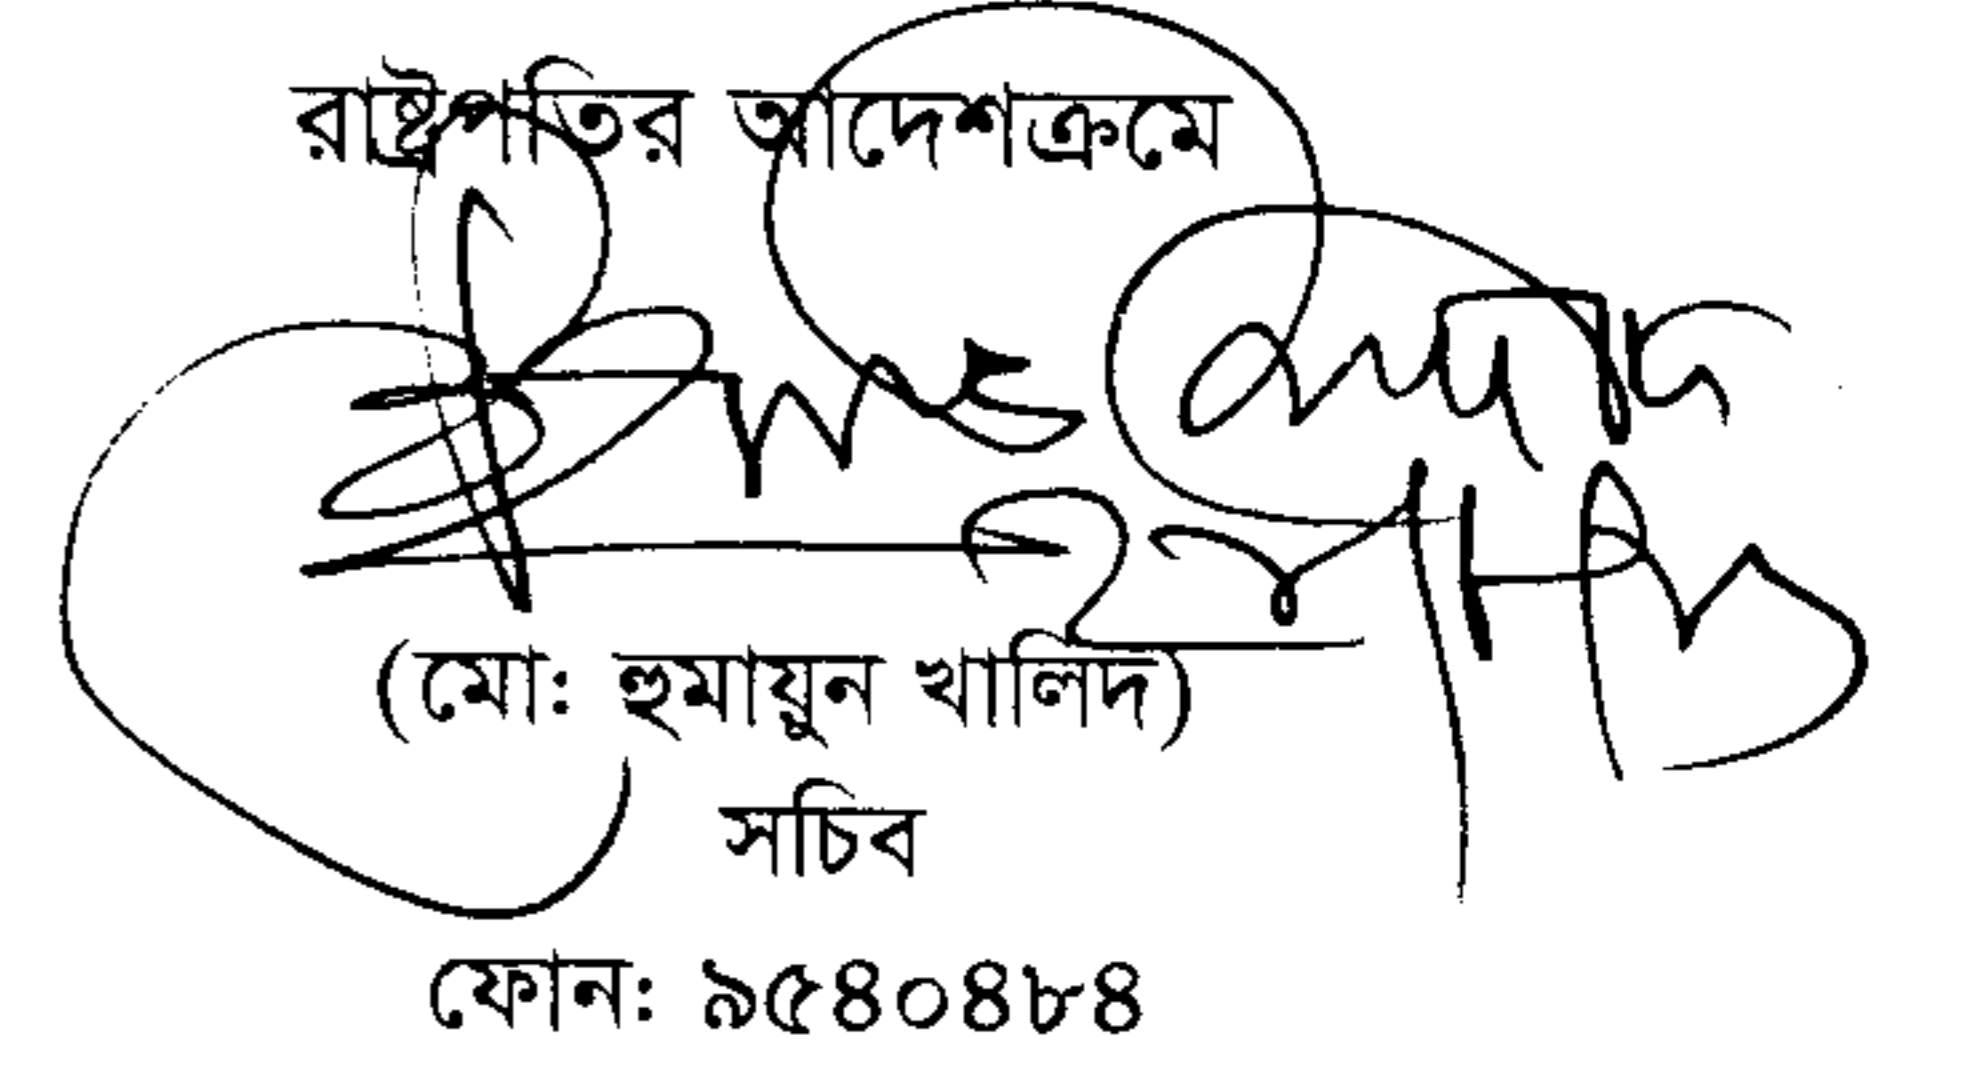 রাষ্ট্রপতির আদেশক্রমে
(মো: হুমায়ুন খালিদ)
সচিব
ফোন: ৯৫৪০৪৮৪